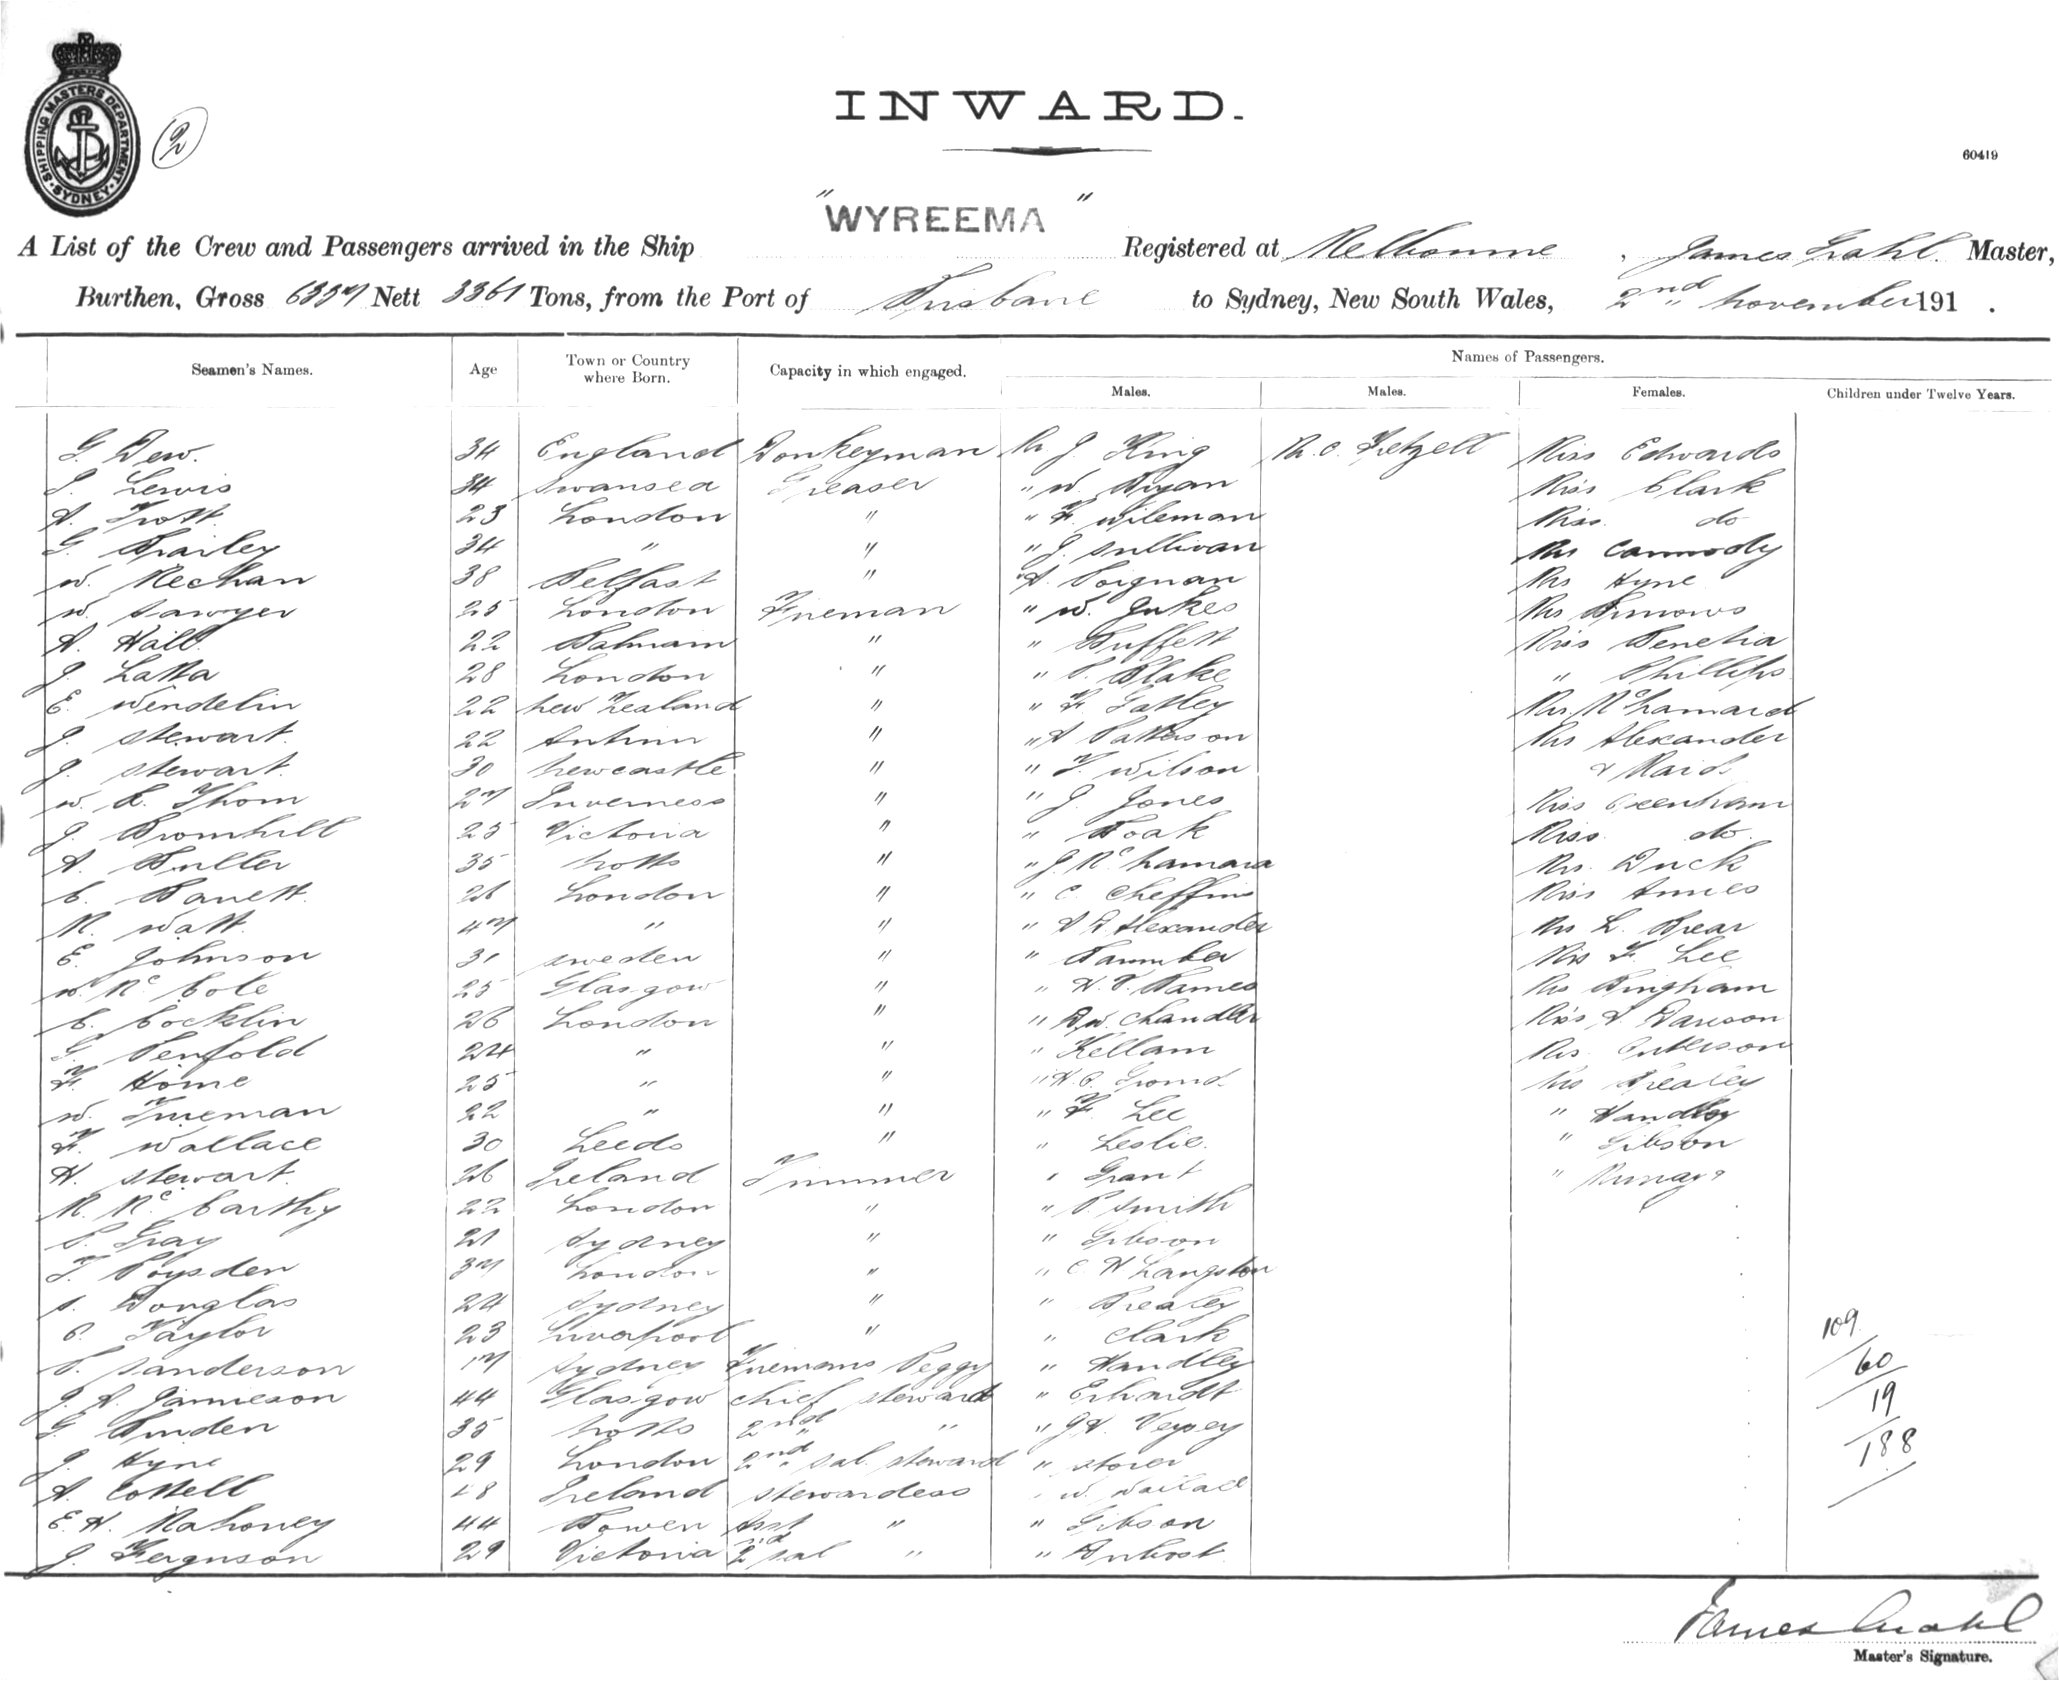 SHIPPING MASTERS DEPARTMENT SYDNEY
2
INWARD.
60419
"WYREEMA"
A List of the Crew and Passengers arrived in the Ship Registered at Melbourne, James Grahl. Master,
Burthen, Gross 6337 Nett 3361 Tons, from the Port of Brisbane to Sydney, New South Wales, 2nd November 191 .
Seamen's Names. Age Town or Country where Born. Capacity in which engaged. Names of Passengers.
Males. Males. Females. Children under Twelve Years.
G. Dew. 34 England Donkeyman Mr J. King Mr. C. Fretzell Miss Edwards
J. Lewis 34 Swansea Greaser " W. Ryan Miss Clark
A. Trott 23 London " " F. Wileman Miss do
G. Brailey 34 " " " J. Sullivan Mrs Carmody
W. Meehan 38 Belfast " " Mrs Hyne
W. Sawyer 25 London Fireman " W. Jukes Mrs
A. Hall 22 Balmain " " Buffett Miss Benetia
J. Latta 28 London " " P. Blake " Phillips
E. Wendelin 22 New Zealand " " F. Gatley Mrs. McNamara
J. Stewart. 22 Antrim " " A Patterson Mrs Alexander
J. Stewart. 30 Newcastle " " T. Wilson & Maid.
W. R. Thom 27 Inverness " " J. Jones Miss Greenham
J. Bromhill 25 Victoria " " Boak Miss. do.
A. Buller 35 Notts " " J. McNamara Mrs. Duck
C. Barrett. 26 London " " C. Cheffins Miss Annes
R. Watt. 47 " " " A D Alexander Mrs L. Brear
E. Johnson 31 Sweden " " Mrs F. Lee
W. McCole 25 Glasgow " " H. P. Barnes Mrs Bingham
C. Cocklin 26 London " " D. W. Chandler Miss D. Dawson
G. Penfold 24 " " " Kellam Mrs.
F. Horne 25 " " " H. C. Mrs Brealey
W. Trueman 22 " " " F. Lee " Handley
F. Wallace 30 Leeds " " Leslie. " Gibson
H. Stewart. 26 Ireland Trimmer " Grant " Murray
R. McCarthy 22 London " " P. Smith
P. Gray 21 Sydney " " Gibson
T. Poysden 37 London " " C H Langston
S. Douglas 24 Sydney " " Brealey
C. Taylor 23 Liverpool " " Clark 109
P. Sanderson 17 Sydney Firemans Peggy " Handley 60
J. A. Jamieson 44 Glasgow Chief Steward " Erhardt 19
G. Binden 35 Notts 2nd " " J. H. Veysey 188
J. Hyne 29 London 2nd Sal. Steward " Storer
A. Cottell 48 Ireland Stewardess " W. Wallace
E. H. Mahoney 44 Bowen Asst " " Gibson
J. Ferguson 29 Victoria 2nd Sal " "
James Grahl
Master's Signature.